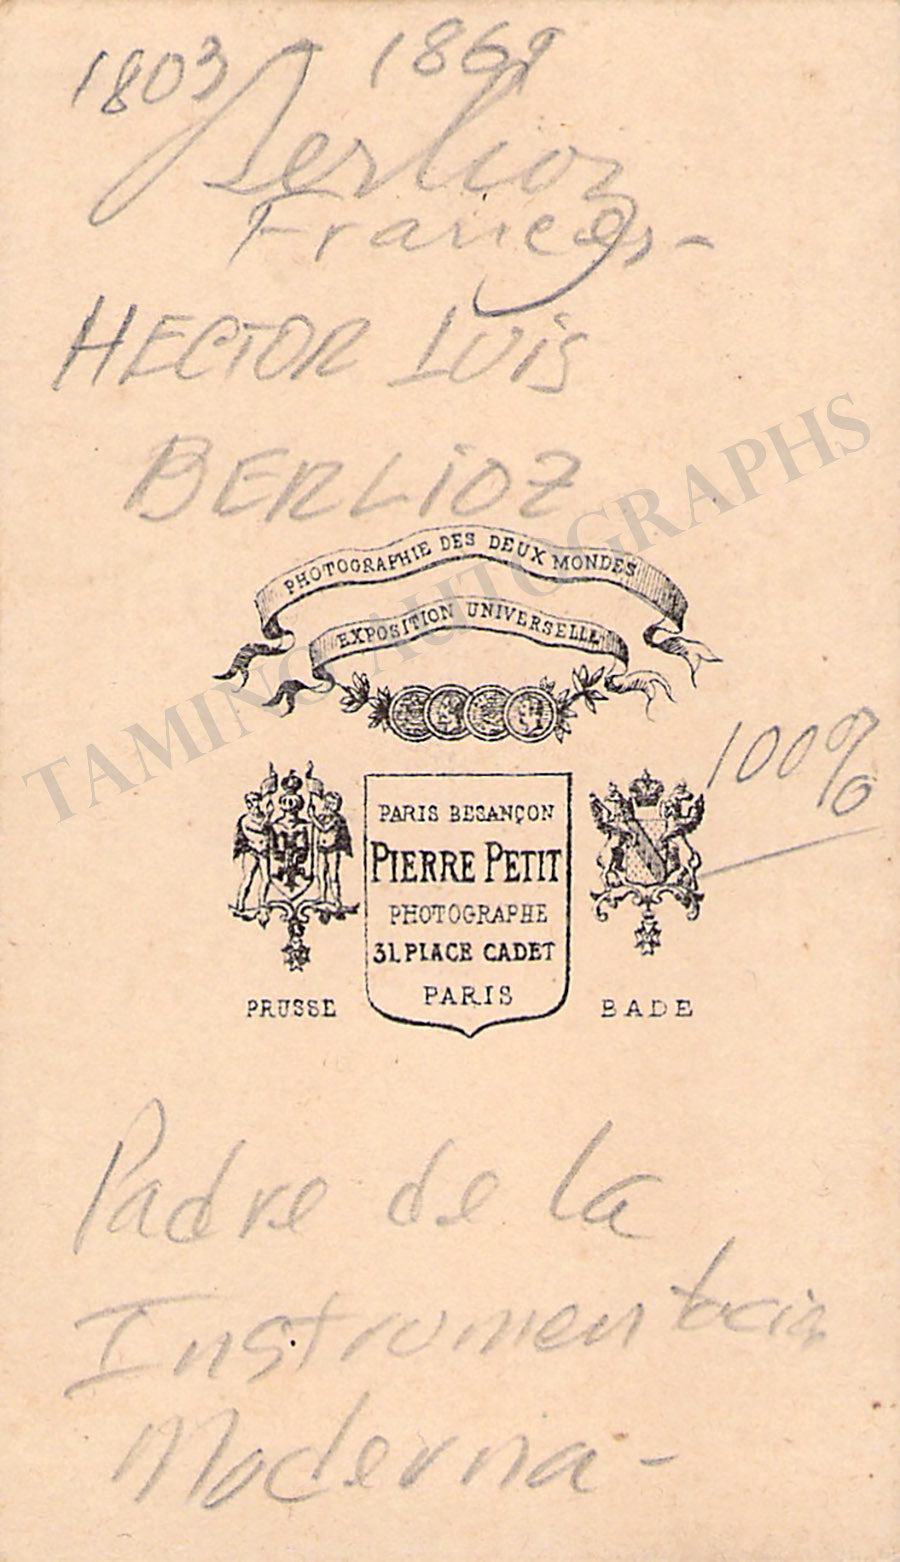 1803 1869
Berlioz
Frances -
HECTOR LUIS
BERLIOZ
PHOTOGRAPHIE DES DEUX MONDES
EXPOSITION UNIVERSELLE
TAMINO AUTOGRAPHS
100%
PARIS BESANÇON
PIERRE PETIT
PHOTOGRAPHE
31. PLACE CADET
PARIS
PRUSSE
BADE
Padre de la
Instrumentacion
Moderna -